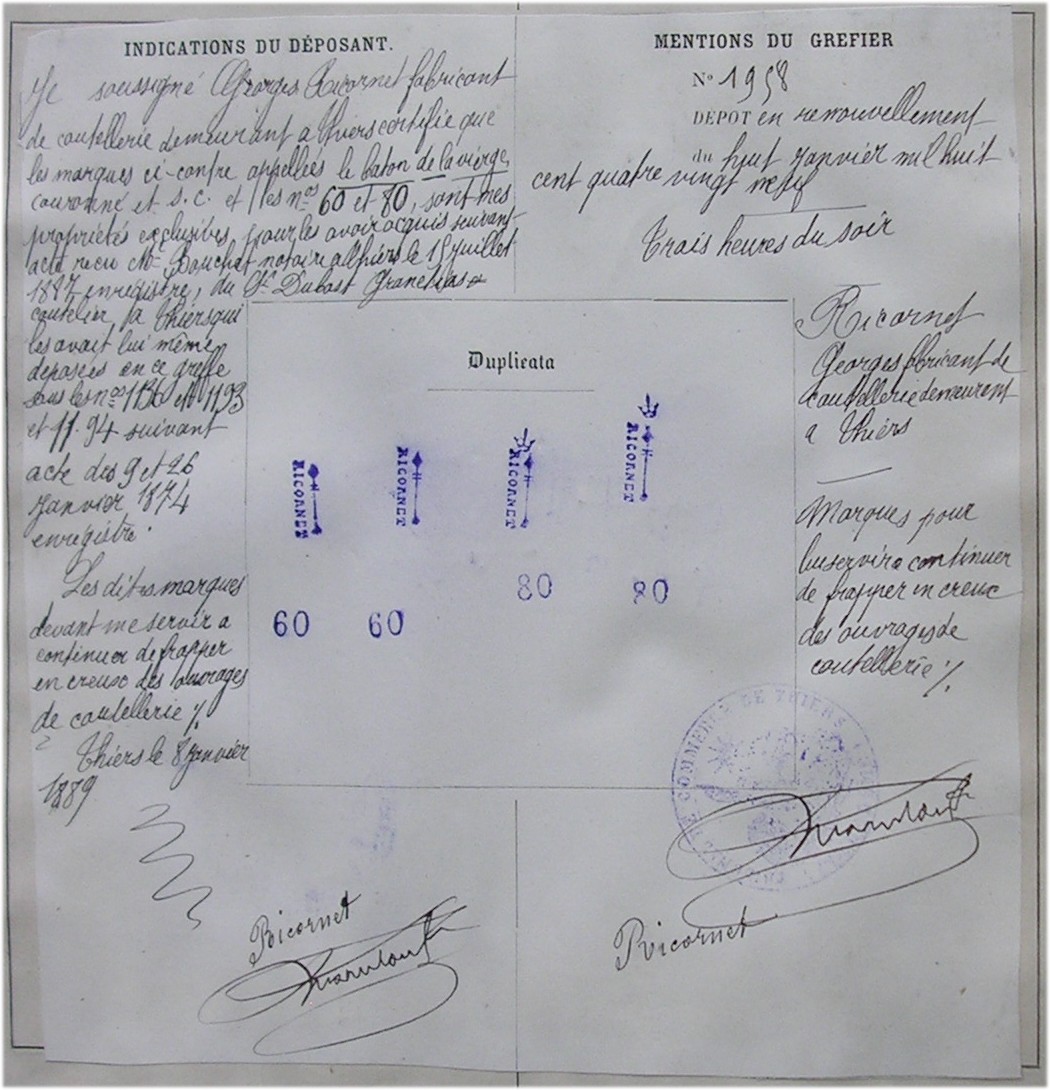 INDICATIONS DU DÉPOSANT.
Je soussigné Georges Ricornet fabricant
de coutellerie demeurant a Thiers certifie que
les marques ci-contre appellées le baton de la vierge
couronné et s.c. et les nos 60 et 80, sont mes
propriétés exclusives, pour les avoir acquis suivant
acte recu Me notaire a Thiers le 15 juillet
1887 enregistre, du Sr Dubost
coutelier a Thiers qui
les avait lui même
déposées en ce greffe
sous les nos 1136 et 1193
et 11.94 suivant
acte des 9 et 26
Janvier 1874
enregistré.
Les dites marques
devant me servir a
continuer de frapper
en creux des ouvrages
de coutellerie ./.
Thiers le 8 Janvier
1889
Ricornet
MENTIONS DU GREFIER
No 1958
DÉPOT en renouvellement
du huit Janvier mil huit
cent quatre vingt neuf
Trois heures du soir
Ricornet
Georges fabricant de
coutellerie demeurant
a Thiers
Marques pour
lui servir a continuer
de frapper en creux
des ouvrages de
coutellerie ./.
Duplicata
RICORNET
RICORNET
RICORNET
RICORNET
60
60
80
80
DE COMMERCE DE THIERS
Ricornet